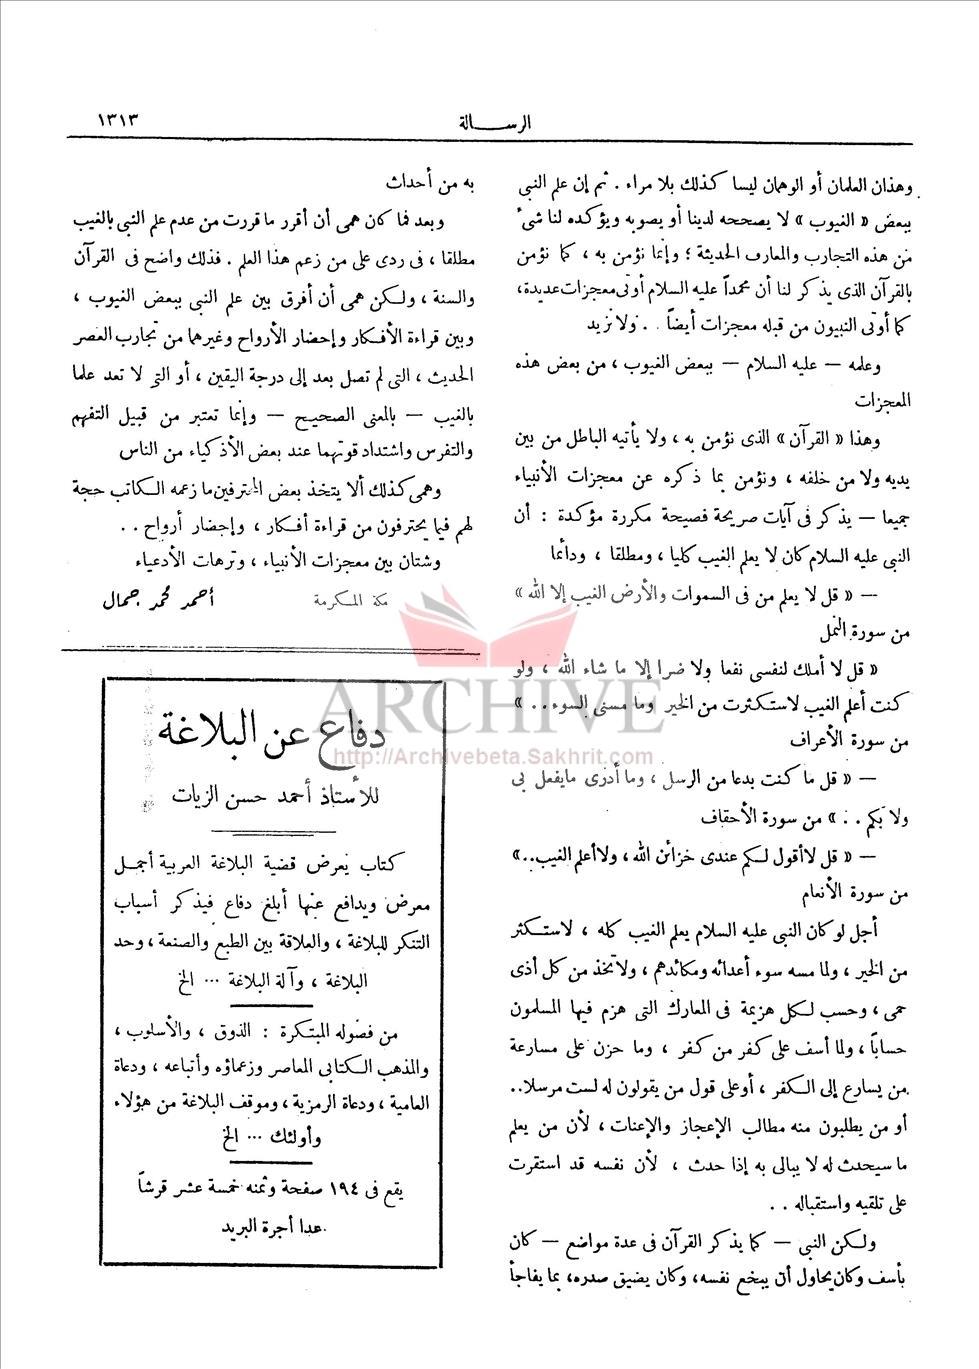 الرسالة
١٣١٣
وهذان العلمان أو الوهمان ليسا كذلك بلا مراء . ثم إن علم النبي
ببعض « الغيوب » لا يصححه لدينا أو يصوبه ويؤكده لنا شىء
من هذه التجارب والمعارف الحديثة ؛ وإنما نؤمن به ، كما نؤمن
بالقرآن الذى يذكر لنا أن محمداً عليه السلام أوتى معجزات عديدة،
كما أوتى النبيون من قبله معجزات أيضاً . . ولا نزيد
وعلمه — عليه السلام — ببعض الغيوب ، من بعض هذه
المعجزات
وهذا « القرآن » الذى نؤمن به ، ولا يأتيه الباطل من بين
يديه ولا من خلفه ، ونؤمن بما ذكره عن معجزات الأنبياء
جميعا — يذكر فى آيات صريحة فصيحة مكررة مؤكدة : أن
النبى عليه السلام كان لا يعلم الغيب كليا ، ومطلقا ، ودائما
— « قل لا يعلم من فى السموات والأرض الغيب إلا الله »
من سورة النمل
« قل لا أملك لنفسى نفعا ولا ضرا إلا ما شاء الله ، ولو
كنت أعلم الغيب لاستكثرت من الخير وما مسنى السوء . . »
من سورة الأعراف
— « قل ما كنت بدعا من الرسل ، وما أدرى مايفعل بى
ولا بكم . . » من سورة الأحقاف
— « قل لاأقول لكم عندى خزائن الله ، ولاأعلم الغيب..»
من سورة الأنعام
أجل لو كان النبى عليه السلام يعلم الغيب كله ، لاستكثر
من الخير ، ولما مسه سوء أعدائه ومكائدهم ، ولاتخذ من كل أذى
حمى ، وحسب لكل هزيمة فى المعارك التى هزم فيها المسلمون
حساباً ، ولما أسف على كفر من كفر ، وما حزن على مسارعة
من يسارع إلى الكفر ، أوعلى قول من يقولون له لست مرسلا..
أو من يطلبون منه مطالب الإعجاز والإعنات ، لأن من يعلم
ما سيحدث له لا يبالى به إذا حدث ، لأن نفسه قد استقرت
على تلقيه واستقباله . .
ولكن النبى — كما يذكر القرآن فى عدة مواضع — كان
يأسف وكان يحاول أن يبخع نفسه، وكان يضيق صدره، بما يفاجأ
به من أحداث
وبعد فما كان همى أن أقرر ما قررت من عدم علم النبى بالغيب
مطلقا ، فى ردى على من زعم هذا العلم . فذلك واضح فى القرآن
والسنة ، ولكن همى أن أفرق بين علم النبى ببعض الغيوب ،
وبين قراءة الأفكار وإحضار الأرواح وغيرها من تجارب العصر
الحديث ، التى لم تصل بعد إلى درجة اليقين ، أو التى لا تعد علما
بالغيب — بالمعنى الصحيح — وإنما تعتبر من قبيل التفهم
والتفرس واشتداد قوتهما عند بعض الأذكياء من الناس
وهمى كذلك ألا يتخذ بعض المحترفين ما زعمه الكاتب حجة
لهم فيما يحترفون من قراءة أفكار ، وإحضار أرواح . .
وشتان بين معجزات الأنبياء ، وترهات الأدعياء
مكة المكرمة أحمد محمد جمال
دفاع عن البلاغة
للأستاذ أحمد حسن الزيات
كتاب يعرض قضية البلاغة العربية أجمل
معرض ويدافع عنها أبلغ دفاع فيذكر أسباب
التنكر للبلاغة ، والعلاقة بين الطبع والصنعة ، وحد
البلاغة ، وآلة البلاغة ... الخ
من فصوله المبتكرة : الذوق ، والأسلوب ،
والمذهب الكتابى المعاصر وزعماؤه وأتباعه ، ودعاة
العامية ، ودعاة الرمزية ، وموقف البلاغة من هؤلاء
وأولئك ... الخ
يقع فى ١٩٤ صفحة وثمنه خمسة عشر قرشاً
عدا أجرة البريد
ARCHIVE
http://Archivebeta.Sakhrit.com